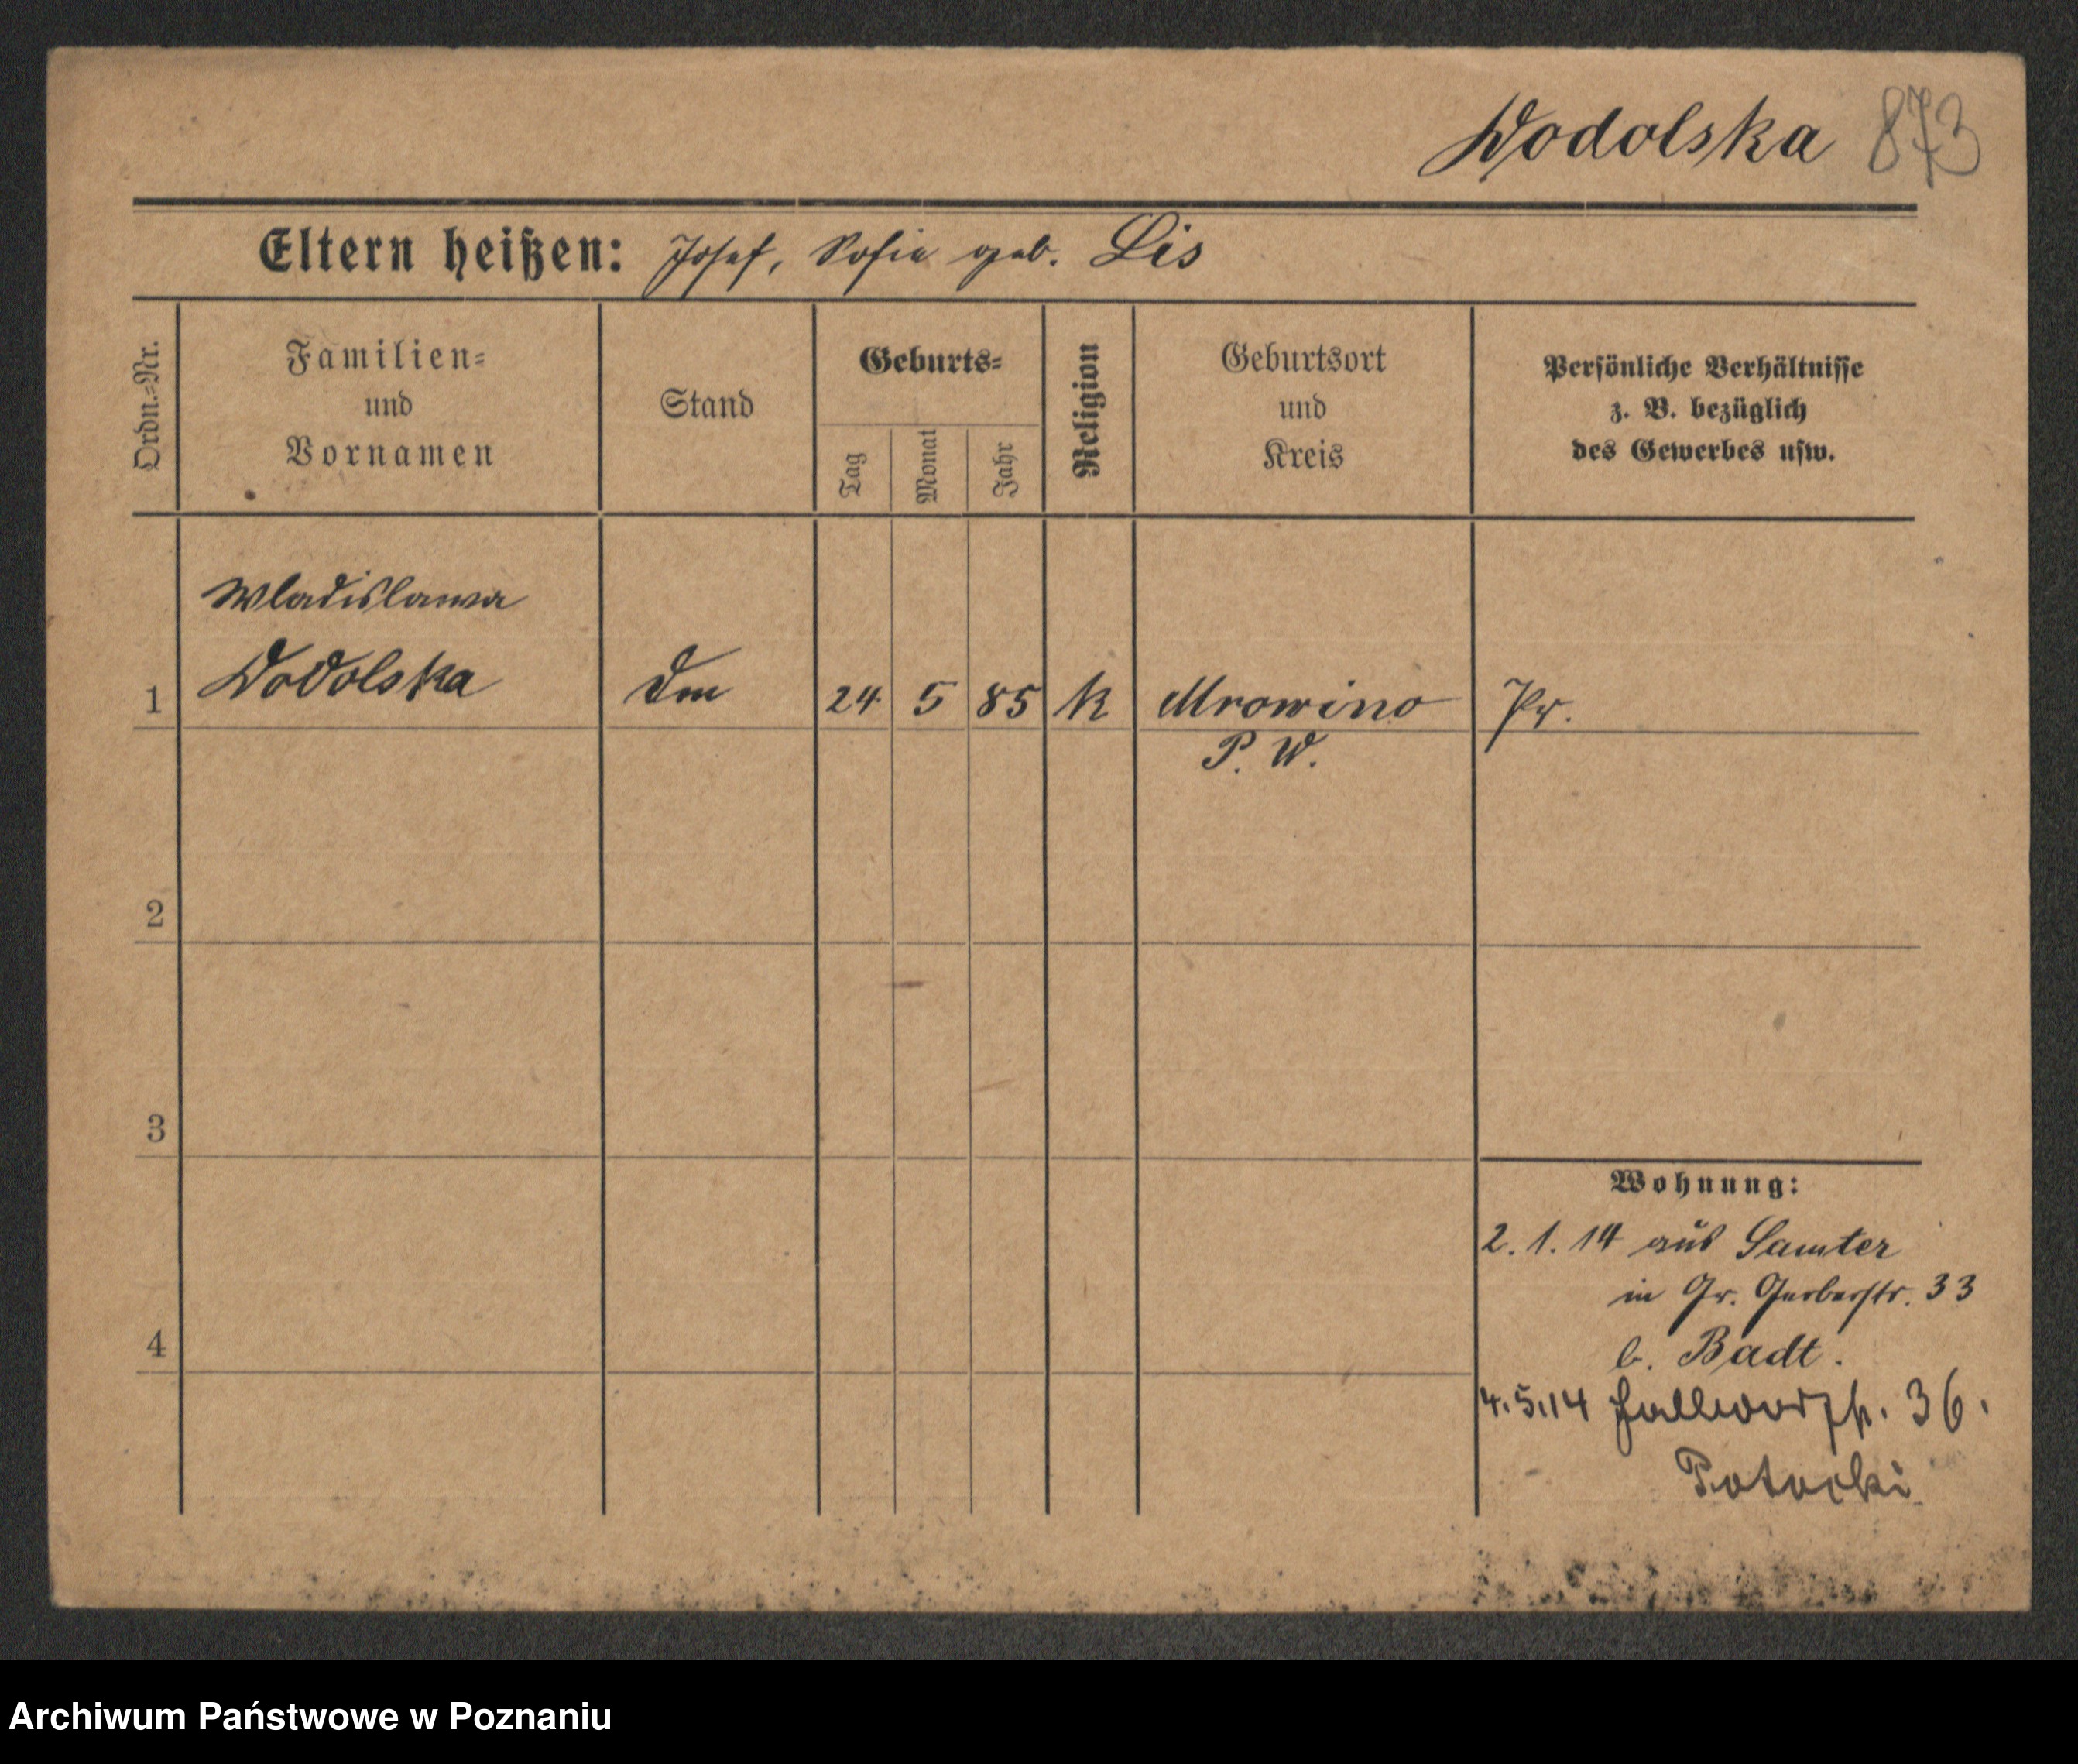 Wodolska 873
Eltern heißen: Josef, Sofie geb. Lis
Ordn.-Nr.
Familien-
und
Vornamen
Stand
Geburts-
Tag
Monat
Jahr
Religion
Geburtsort
und
Kreis
Persönliche Verhältnisse
z. B. bezüglich
des Gewerbes usw.
Wladislawa
1 Wodolska 24 5 85 k Mrowino Pr.
P. W.
2
3
4
Wohnung:
2. 1. 14 aus Samter
in Gr. Gerberstr. 33
b. Badt.
4.5.14 36.
Potocki
Archiwum Państwowe w Poznaniu